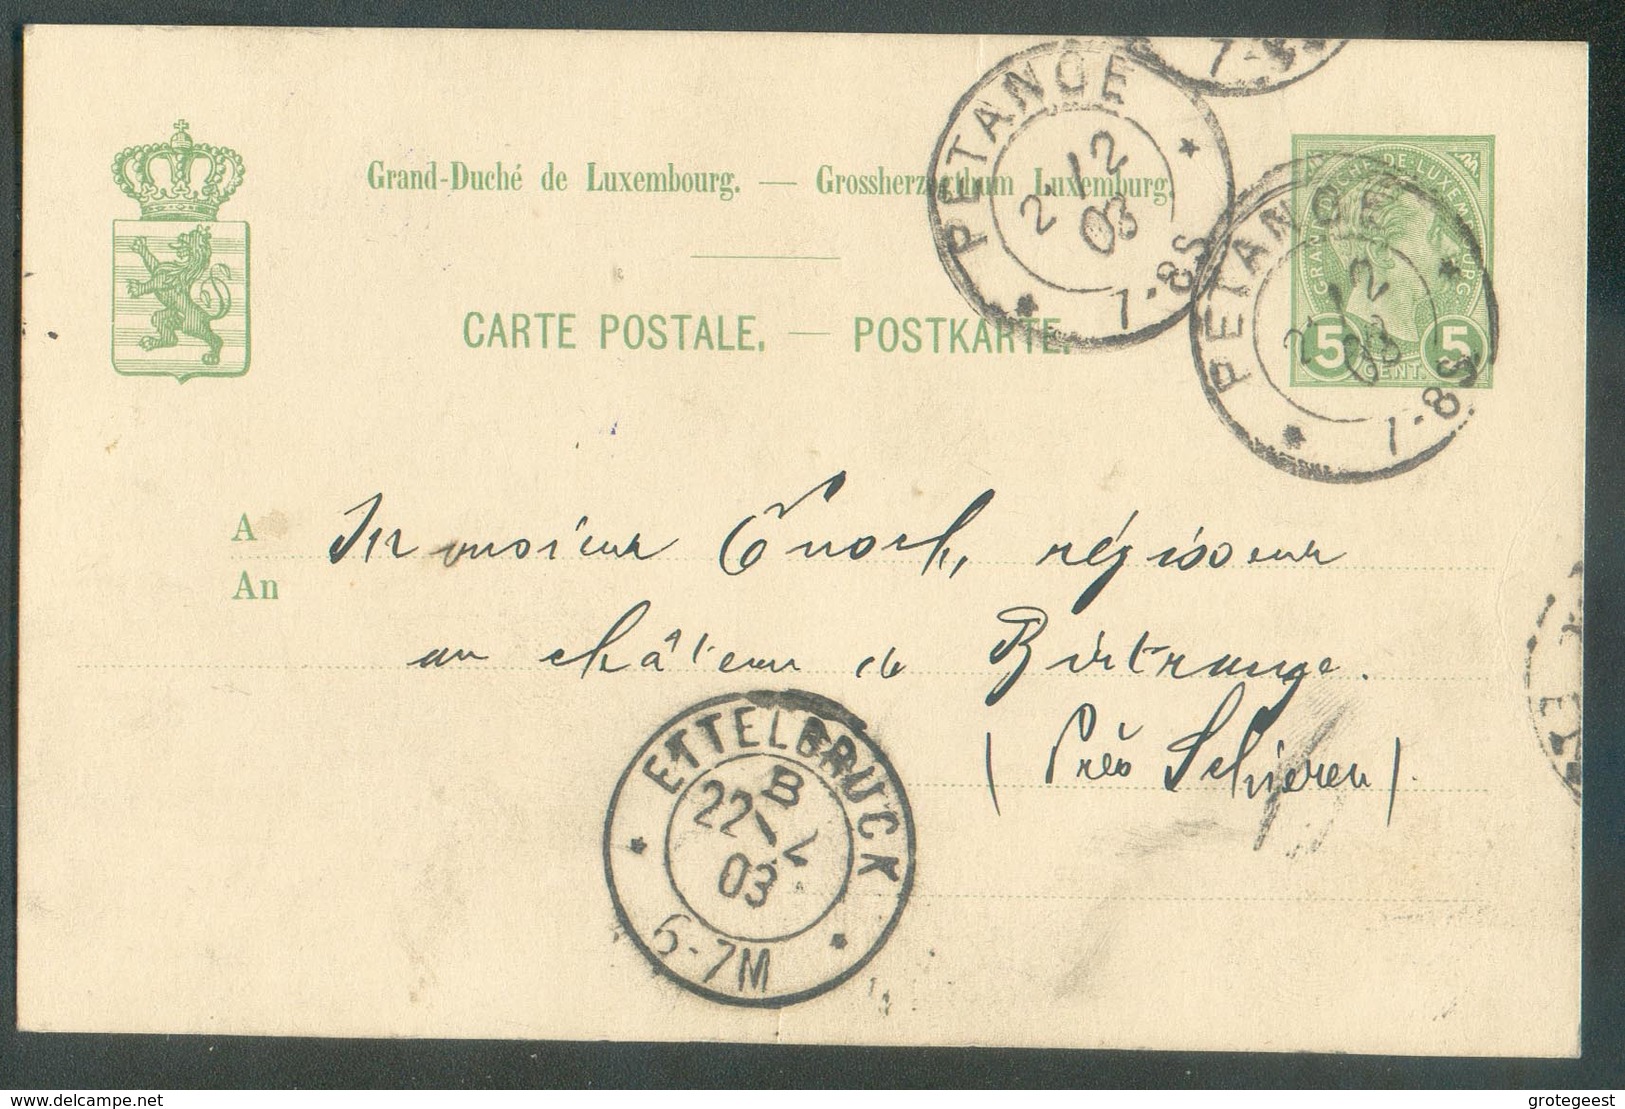 Grand-Duché de Luxembourg. — Grossherzogthum Luxemburg.
CARTE POSTALE. — POSTKARTE.
PETANGE
2-12
03
7-8S
PETANGE
2-12
03
7-8S
GRAND DUCHÉ DE LUXEMBOURG
5 CENT. 5
A
An
Monsieur Enoch, régisseur
au château de Birtrange.
(près Schieren).
ETTELBRUCK
B
22
03
6-7M
delcampe.net
grotegeest